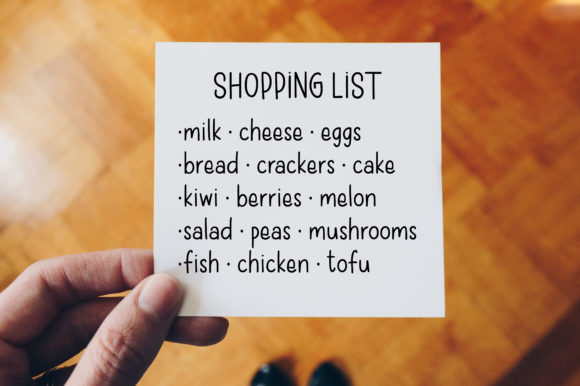 SHOPPING LIST
·milk · cheese · eggs
·bread · crackers · cake
·kiwi · berries · melon
·salad · peas · mushrooms
·fish · chicken · tofu